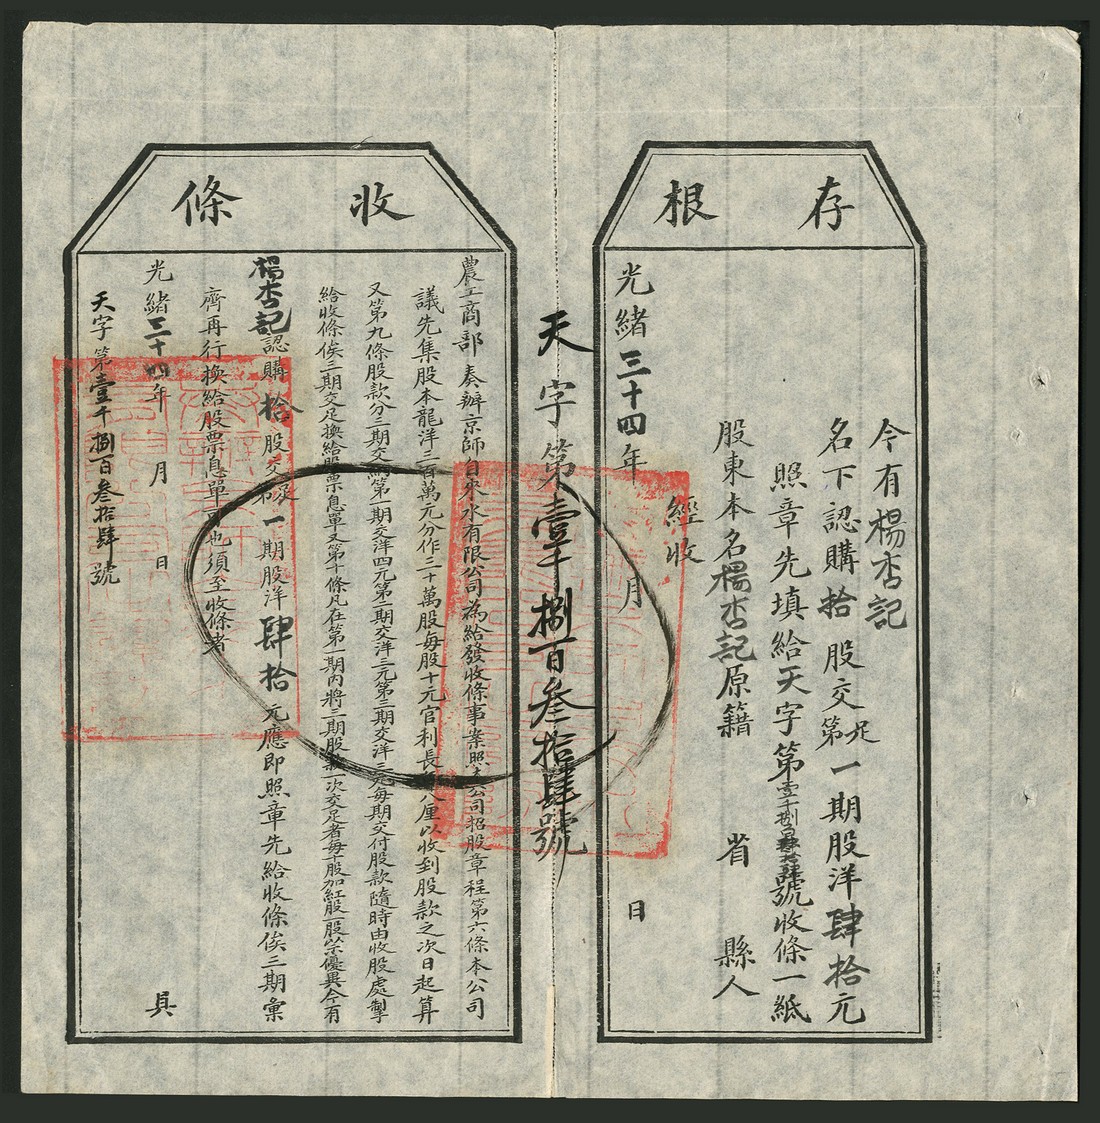 存根
今有楊杏記
名下認購拾股交足第一期股洋肆拾元
照章先填給天字第壹千捌百叁拾肆號收條一紙
股東本名楊杏記原籍 省 縣人
經收
光緒三十四年 月 日
天字第壹千捌百叁拾肆號
收條
農工商部奏辦京師自來水有限公司為給發收條事案照本公司招股章程第六條本公司
議先集股本龍洋三百萬元分作三十萬股每股十元官利長年八厘以收到股款之次日起算
又第九條股款分三期交納第一期交洋四元第二期交洋三元第三期交洋三元每期交付股款隨時由收股處掣
給收條俟三期交足換給股票息單又第十條凡在第一期內將三期股款一次交足者每十股加紅股一股以示優異今有
楊杏記認購拾股交足第一期股洋肆拾元應即照章先給收條俟三期彙
齊再行換給股票息單可也須至收條者
光緒三十四年 月 日 具
天字第壹千捌百叁拾肆號